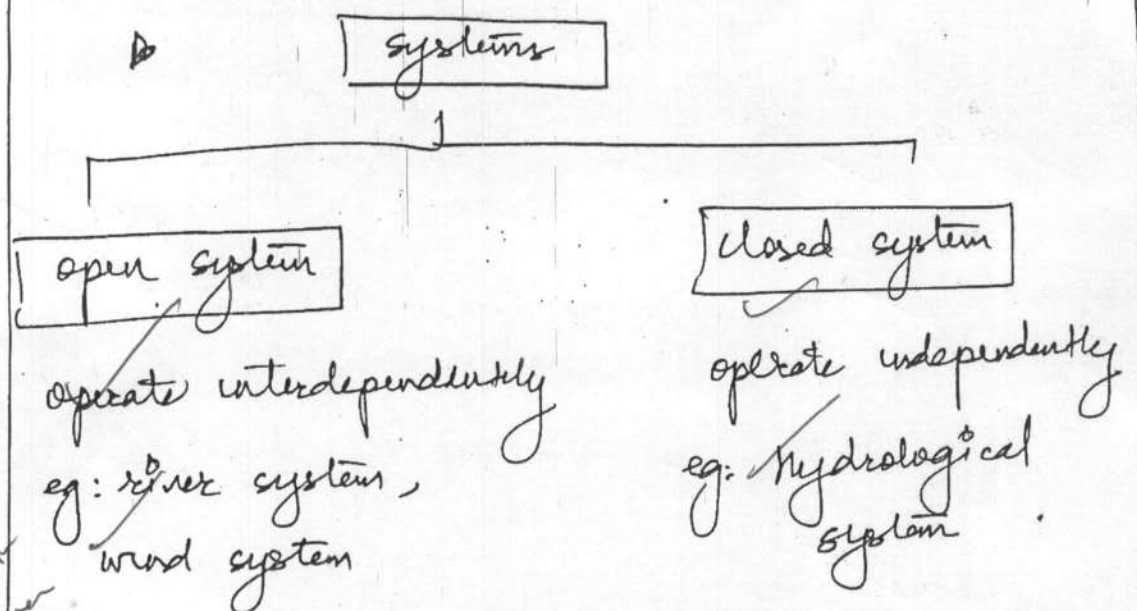 systems
open system
operate interdependently
eg: river system,
wind system
closed system
operate independently
eg: hydrological
system.